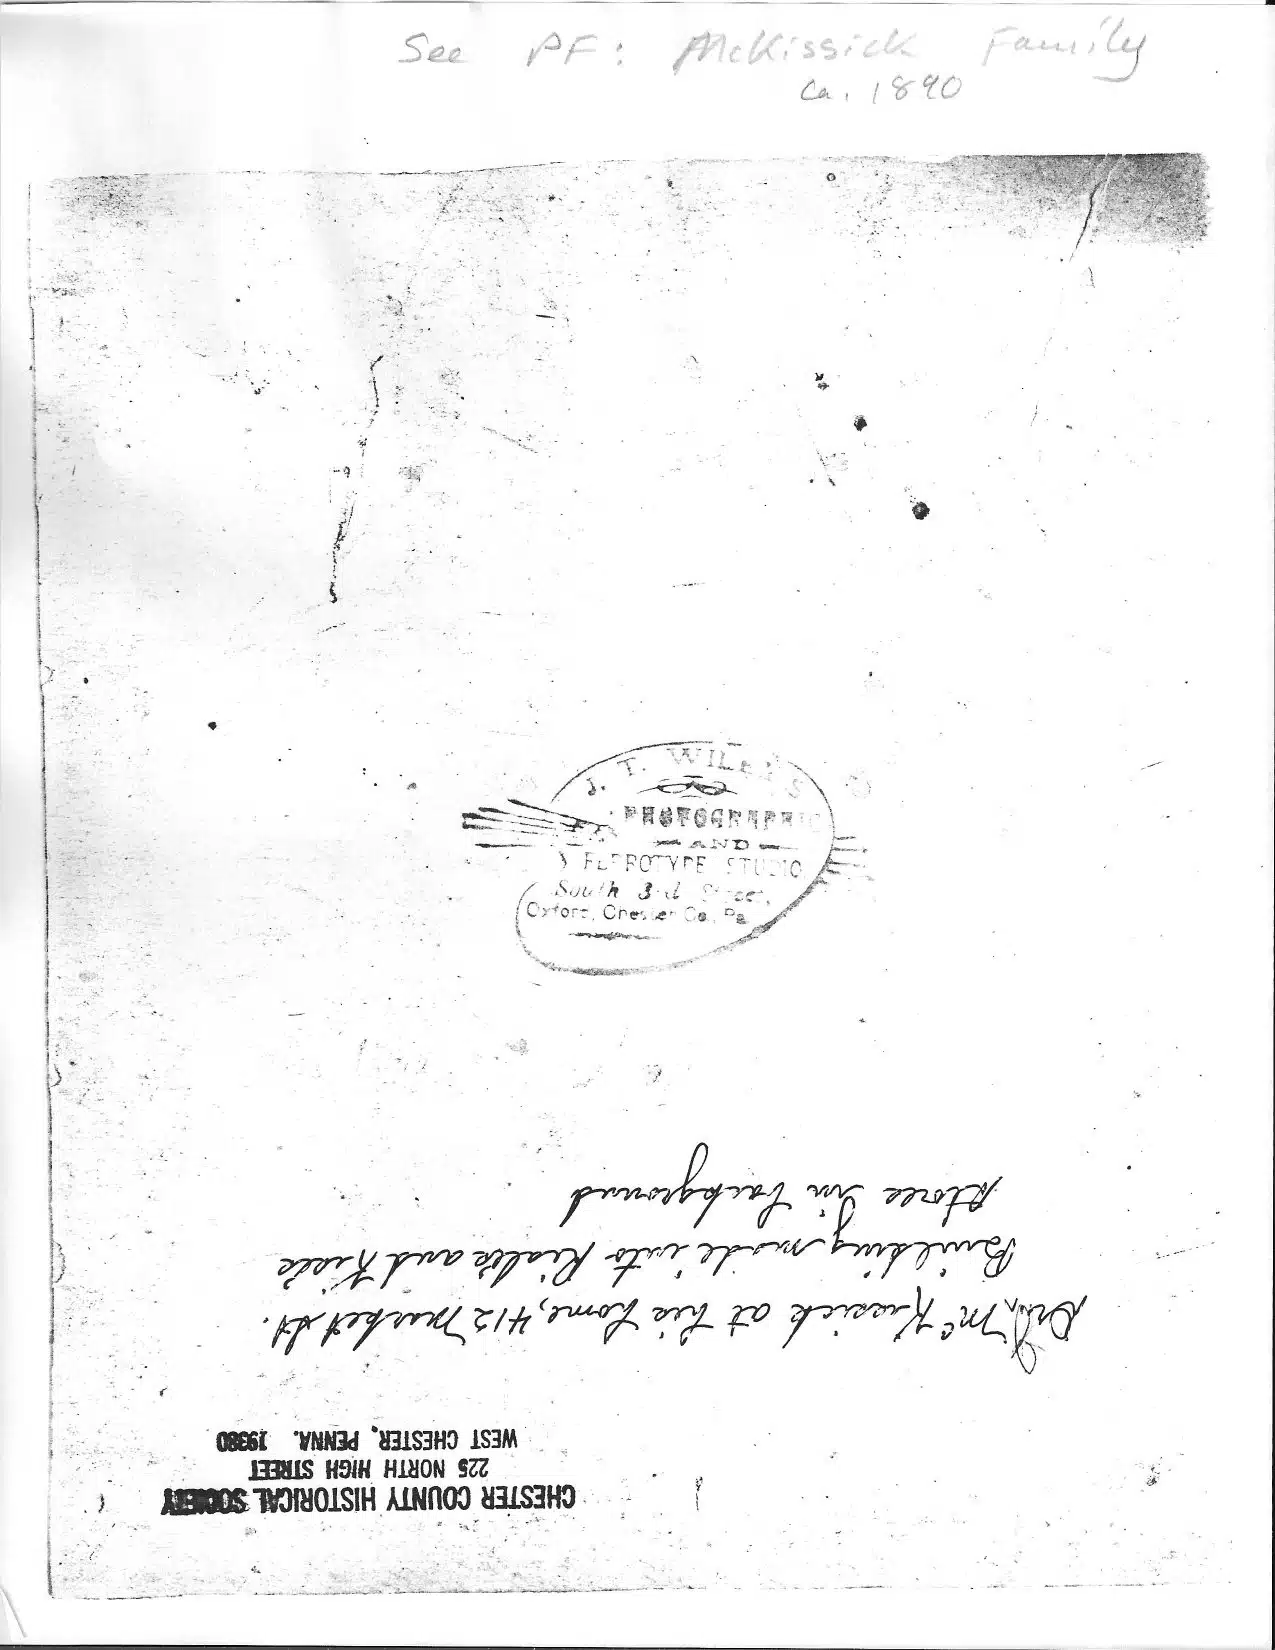 See PF: McKissick Family
Ca. 1890
J. T.
PHOTOGRAPHIC
AND
FERROTYPE STUDIO
South 3rd Street,
Oxford, Chester Co., Pa.
CHESTER COUNTY HISTORICAL SOCIETY
225 NORTH HIGH STREET
WEST CHESTER, PENNA. 19380
Dr. J. McKissick at his home, 412 Market St.
Building made into and
stores in background